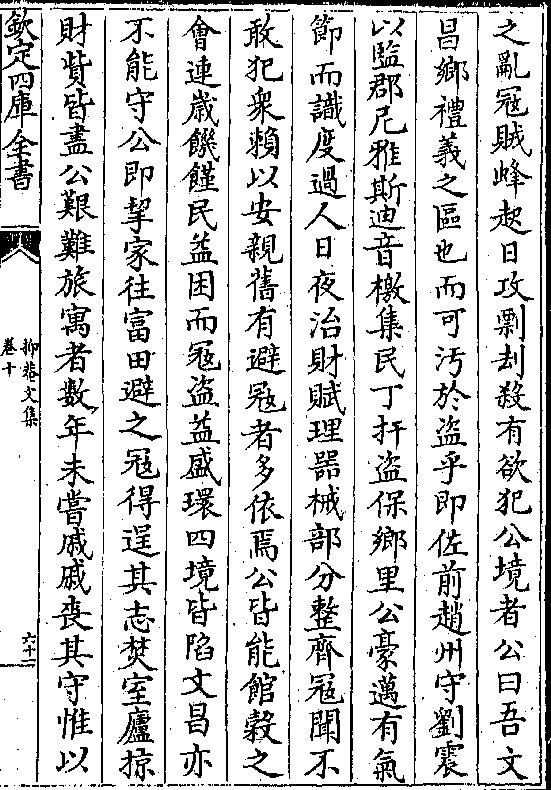 之亂冦賊蜂起日攻剽刦殺有欲犯公境者公曰吾文
昌鄉禮義之區也而可汚於盜乎即佐前趙州守劉震
以監郡尼雅斯迪音檄集民丁扞盜保鄉里公豪邁有氣
節而識度過人日夜治財賦理器械部分整齊冦聞不
敢犯衆賴以安親舊有避冦者多依焉公皆能館穀之
㑹連嵗饑饉民益困而冦盜益盛環四境皆陷文昌亦
不能守公即挈家往富田避之冦得逞其志焚室廬掠
財貲皆盡公艱難旅寓者數年未嘗戚戚喪其守惟以
欽定四庫全書
抑菴文集
卷十
六十二